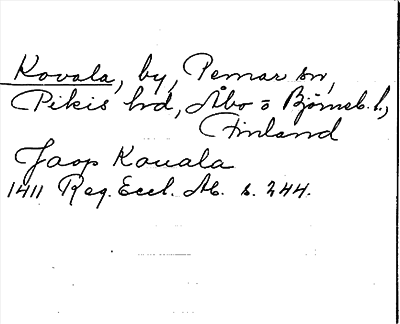 Kovala, by, Pemar sn,
Pikis hd, Åbo o Björneb. l.,
Finland
Jaop Kouala
1411 Reg. Eccl. Ab. s. 244.